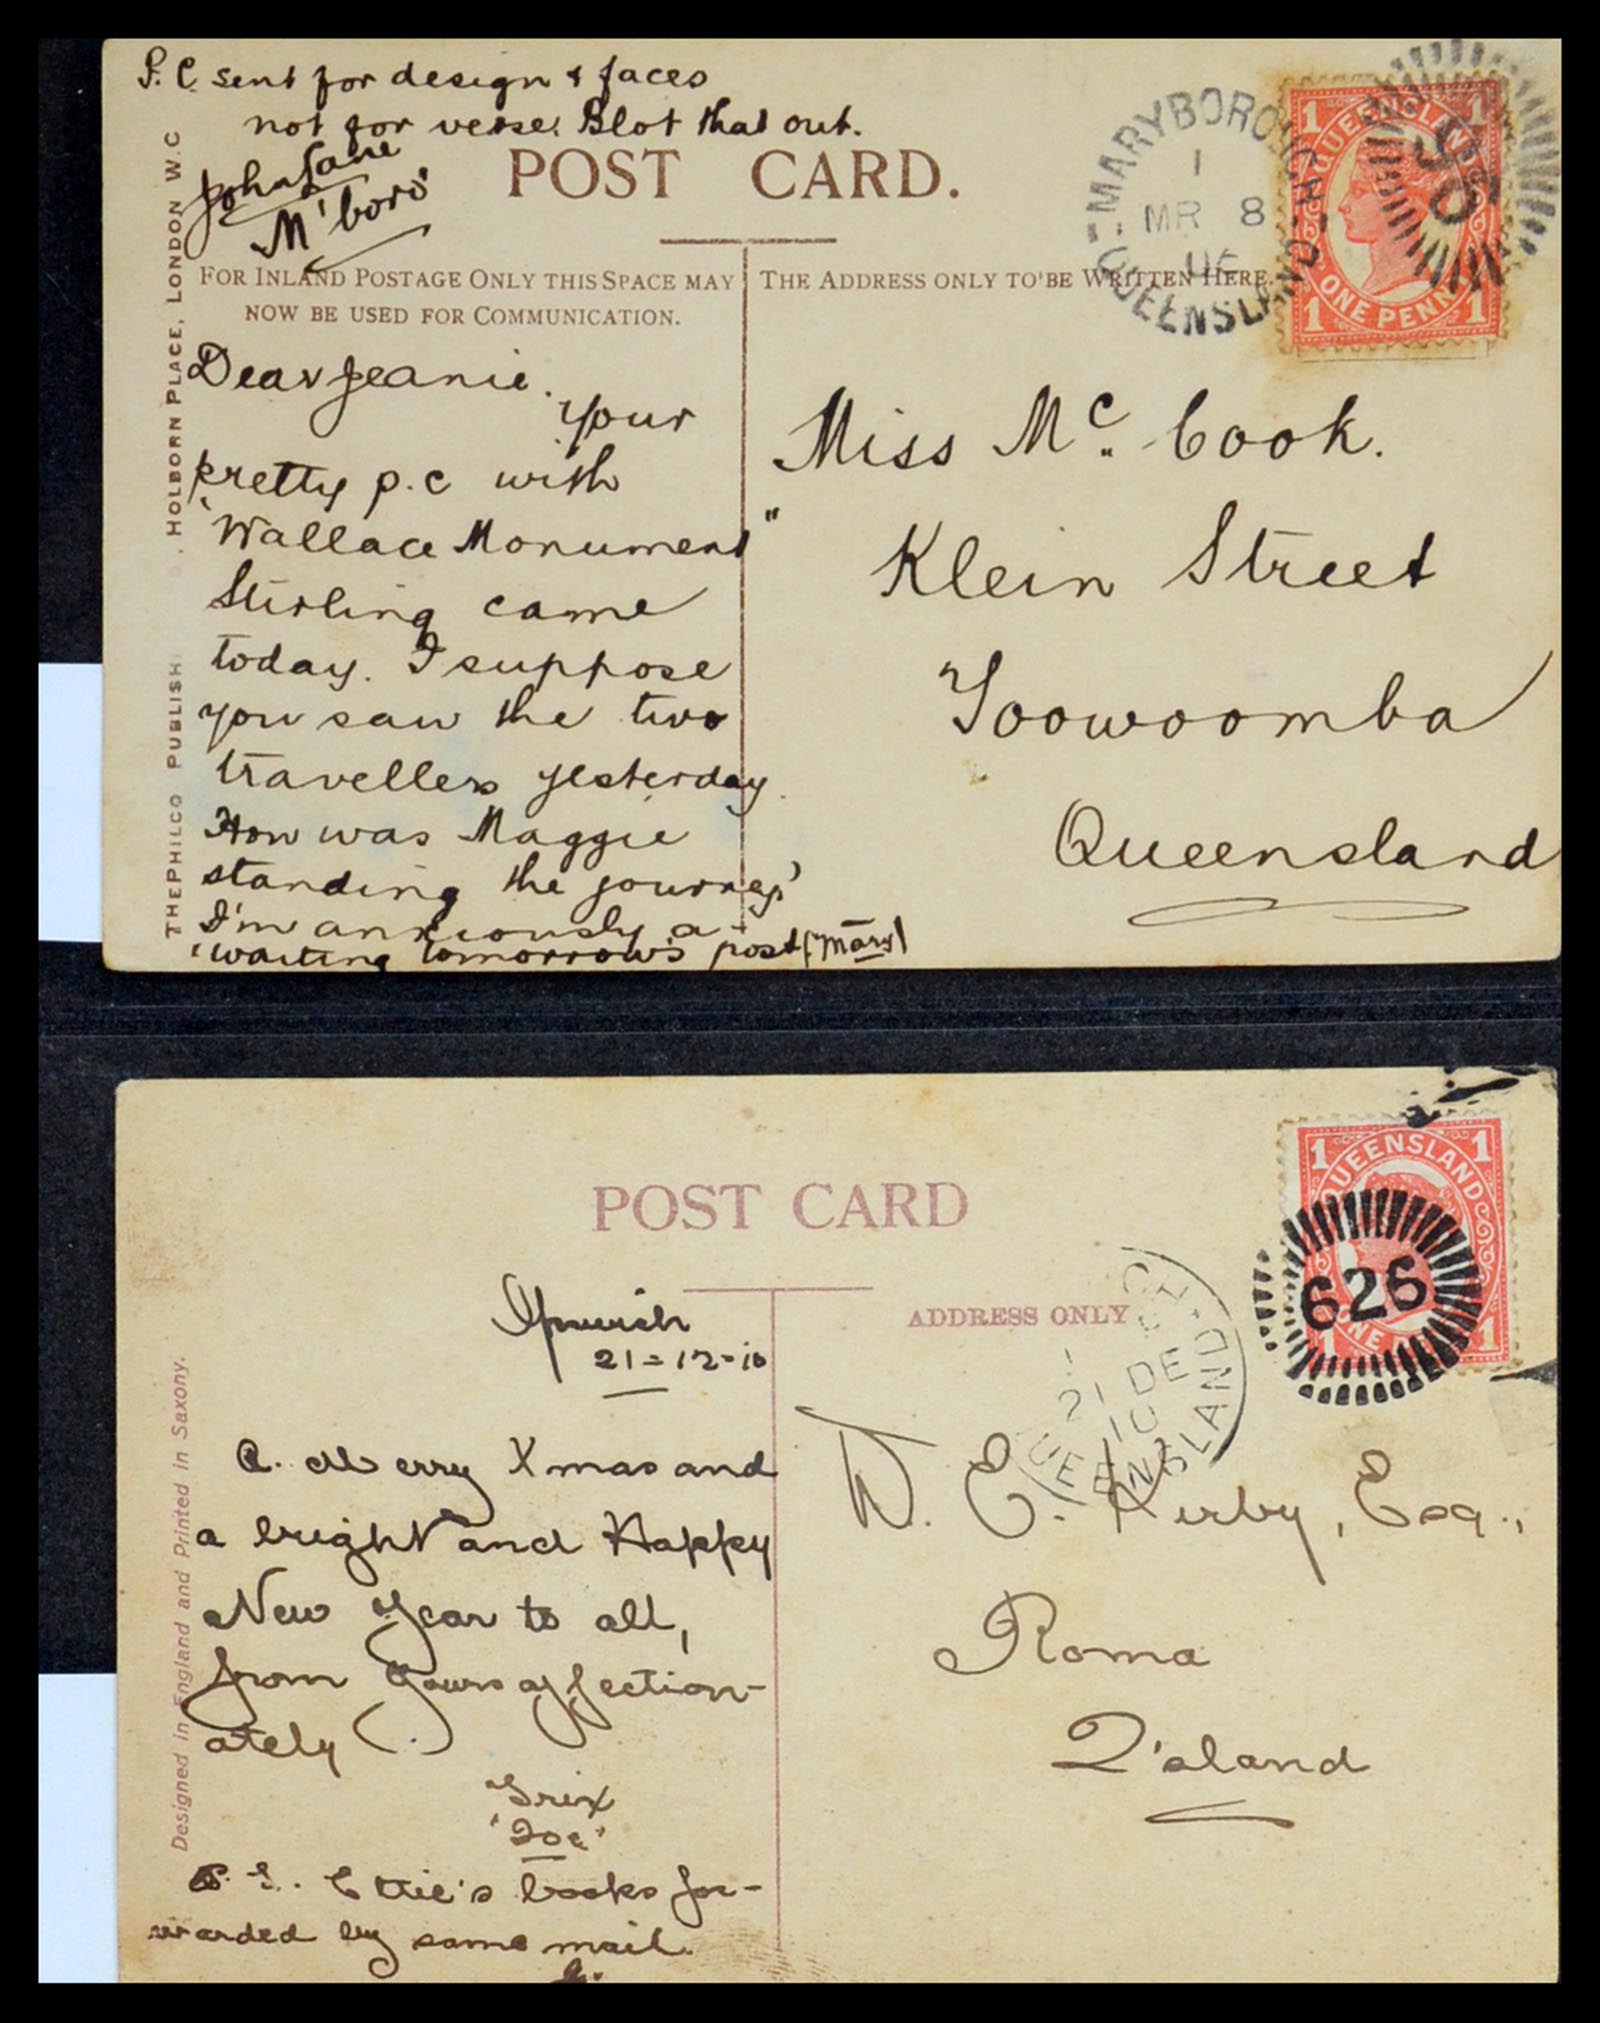 P.C. sent for design & faces
not for verse. Blot that out.
John Lane
M'boro'
POST CARD.
MARYBORO
1
MR 8
QUEENSLAND
1 QUEENSLAND 1
1 ONE PENNY 1
THE PHILCO PUBLISH
HOLBORN PLACE, LONDON W.C
FOR INLAND POSTAGE ONLY THIS SPACE MAY
NOW BE USED FOR COMMUNICATION.
THE ADDRESS ONLY TO BE WRITTEN HERE.
Dear Jeanie.
Your
pretty p.c with
'Wallace Monument"
Stirling came
today. I suppose
you saw the two
travellers yesterday.
How was Maggie
standing the journey?
I'm anxiously a-
'waiting tomorrow's post (Mary)
Miss Mc. Cook.
Klein Street
Toowoomba
Queensland
POST CARD
Ipswich
21-12-10
ADDRESS ONLY
1
21 DE
10
ENSLAND
1 QUEENSLAND 1
626
1
Designed in England and Printed in Saxony.
A. Merry Xmas and
a bright and Happy
New Year to all,
from Yours affection-
ately (.)
Trix
P.S. Ettie's books for-
warded by same mail.
W. E. Kirby, Esq.,
Roma
Q'sland